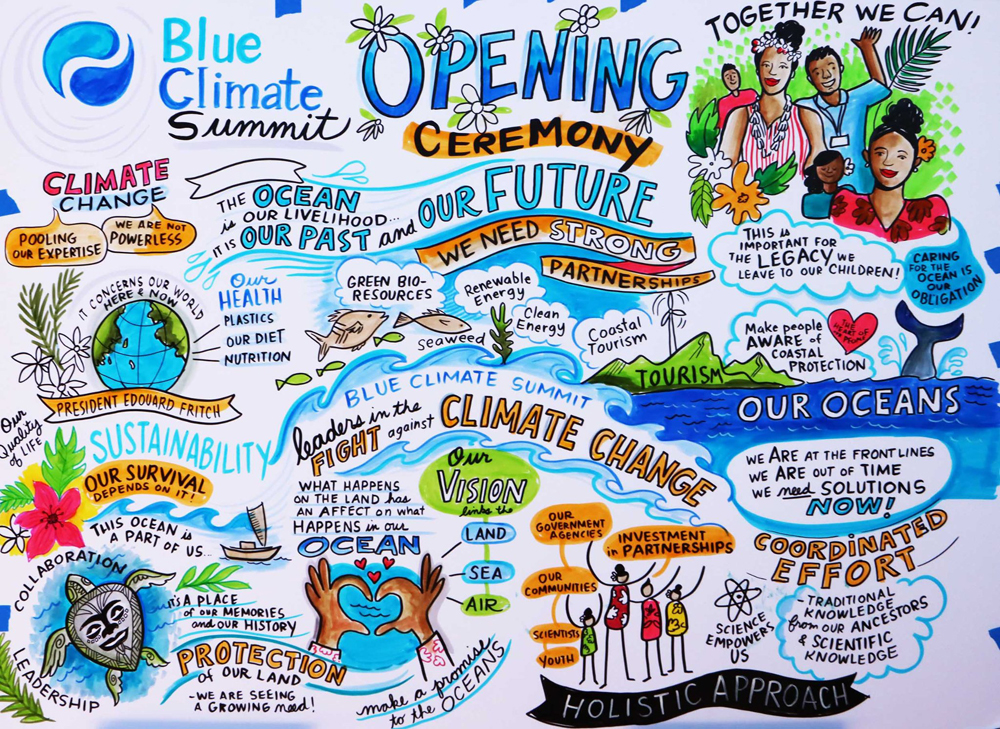 Blue
Climate
Summit
OPENING
CEREMONY
TOGETHER WE CAN!
CLIMATE
CHANGE
POOLING
OUR EXPERTISE
WE ARE NOT
POWERLESS
THE OCEAN
is OUR LIVELIHOOD...
IT IS OUR PAST and OUR FUTURE
WE NEED STRONG
PARTNERSHIPS
THIS is
IMPORTANT FOR
THE LEGACY WE
LEAVE TO OUR CHILDREN!
CARING
FOR THE
OCEAN IS
OUR
OBLIGATION
IT CONCERNS OUR WORLD
HERE & NOW
PRESIDENT EDOUARD FRITCH
OUR
HEALTH
PLASTICS
OUR DIET
NUTRITION
GREEN BIO-
RESOURCES
Renewable
Energy
Seaweed
Clean
Energy
Coastal
Tourism
TOURISM
Make people
AWARE of
COASTAL
PROTECTION
THE
HEART OF
PEOPLE
OUR OCEANS
Our
Quality
of LIFE
SUSTAINABILITY
OUR SURVIVAL
DEPENDS ON IT!
THIS OCEAN is
A PART OF US...
BLUE CLIMATE SUMMIT
leaders in the
FIGHT against CLIMATE CHANGE
WHAT HAPPENS
ON THE LAND has
AN AFFECT on what
HAPPENS in our
OCEAN
Our
VISION
links the
LAND
SEA
AIR
WE ARE AT THE FRONTLINES
WE ARE OUT OF TIME
WE need SOLUTIONS
NOW!
COORDINATED
EFFORT
- TRADITIONAL
KNOWLEDGE
from OUR ANCESTORS
& SCIENTIFIC
KNOWLEDGE
OUR
GOVERNMENT
AGENCIES
OUR
COMMUNITIES
SCIENTISTS
YOUTH
INVESTMENT
in PARTNERSHIPS
SCIENCE
EMPOWERS
US
HOLISTIC APPROACH
COLLABORATION
LEADERSHIP
IT'S A PLACE
of OUR MEMORIES
and OUR HISTORY
PROTECTION
OF OUR LAND
- WE ARE SEEING
A GROWING need!
make a promise
to the OCEANS